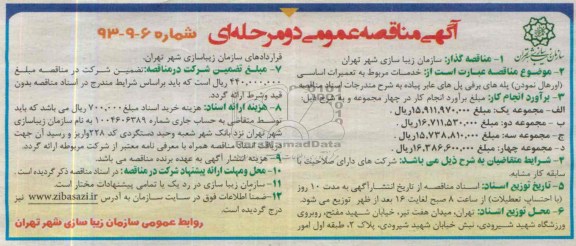 آگهی مناقصه عمومی دو مرحله‌ای شماره ۶-۹-۹۳
سازمان زیباسازی شهر تهران
۱- مناقصه گذار: سازمان زیبا سازی شهر تهران
۲- موضوع مناقصه عبارت است از: خدمات مربوط به تعمیرات اساسی
(اورهال نمودن) پله های برقی پل های عابر پیاده به شرح مندرجات اسناد مناقصه
۳- برآورد انجام کار: مبلغ برآورد انجام کار در چهار مجموعه و به شرح ذیل:
الف- مجموعه یک: مبلغ ۱۵,۹۱۱,۹۷۰,۰۰۰ ریال
ب - مجموعه دو: مبلغ ۱۶,۷۱۱,۵۳۰,۰۰۰ ریال
ج - مجموعه سه: مبلغ ۱۵,۷۳۸,۸۱۰,۰۰۰ ریال
د - مجموعه چهار: مبلغ ۱۶,۳۸۶,۶۰۰,۰۰۰ ریال
۴- شرایط متقاضیان به شرح ذیل می باشد: شرکت های دارای صلاحیت با
سابقه کار مشابه.
۵- تاریخ توزیع اسناد: اسناد مناقصه از تاریخ انتشار آگهی به مدت ۱۰ روز
(با احتساب تعطیلات) از ساعت ۸ صبح لغایت ۱۶ بعد از ظهر توزیع می شود.
۶- محل توزیع اسناد: تهران، میدان هفت تیر، خیابان شهید مفتح، روبروی
ورزشگاه شهید شیرودی، نبش خیابان شهید شیرودی، پلاک ۲، طبقه اول امور
قراردادهای سازمان زیباسازی شهر تهران.
۷- مبلغ تضمین شرکت در مناقصه: تضمین شرکت در مناقصه مبلغ
۴۴۰,۰۰۰,۰۰۰ ریال است که باید براساس شرایط مندرج در اسناد مناقصه بدون
قید و شرط ارائه گردد.
۸- هزینه ارائه اسناد: هزینه خرید اسناد مبلغ ۷۰۰,۰۰۰ ریال می باشد که باید
توسط متقاضی به حساب جاری شماره ۱۰۰۴۶۰۶۳۸۹ به نام سازمان زیباسازی
شهر تهران نزد بانک شهر شعبه وحید دستگردی کد ۲۲۸ واریز و رسید آن جهت
مناقصه همراه با معرفی نامه معتبر از شرکت مربوطه ارائه گردد.
۹- هزینه انتشار آگهی به عهده برنده مناقصه می باشد.
۱۰- محل و مهلت ارائه پیشنهاد شرکت در مناقصه: در اسناد مناقصه ذکر گردیده است.
۱۱- سازمان زیبا سازی در رد یک یا تمامی پیشنهادات مختار است.
۱۲- ضمنا اطلاعات فوق در سایت سازمان به آدرس www.zibasazi.ir نیز
درج گردیده است.
روابط عمومی سازمان زیبا سازی شهر تهران